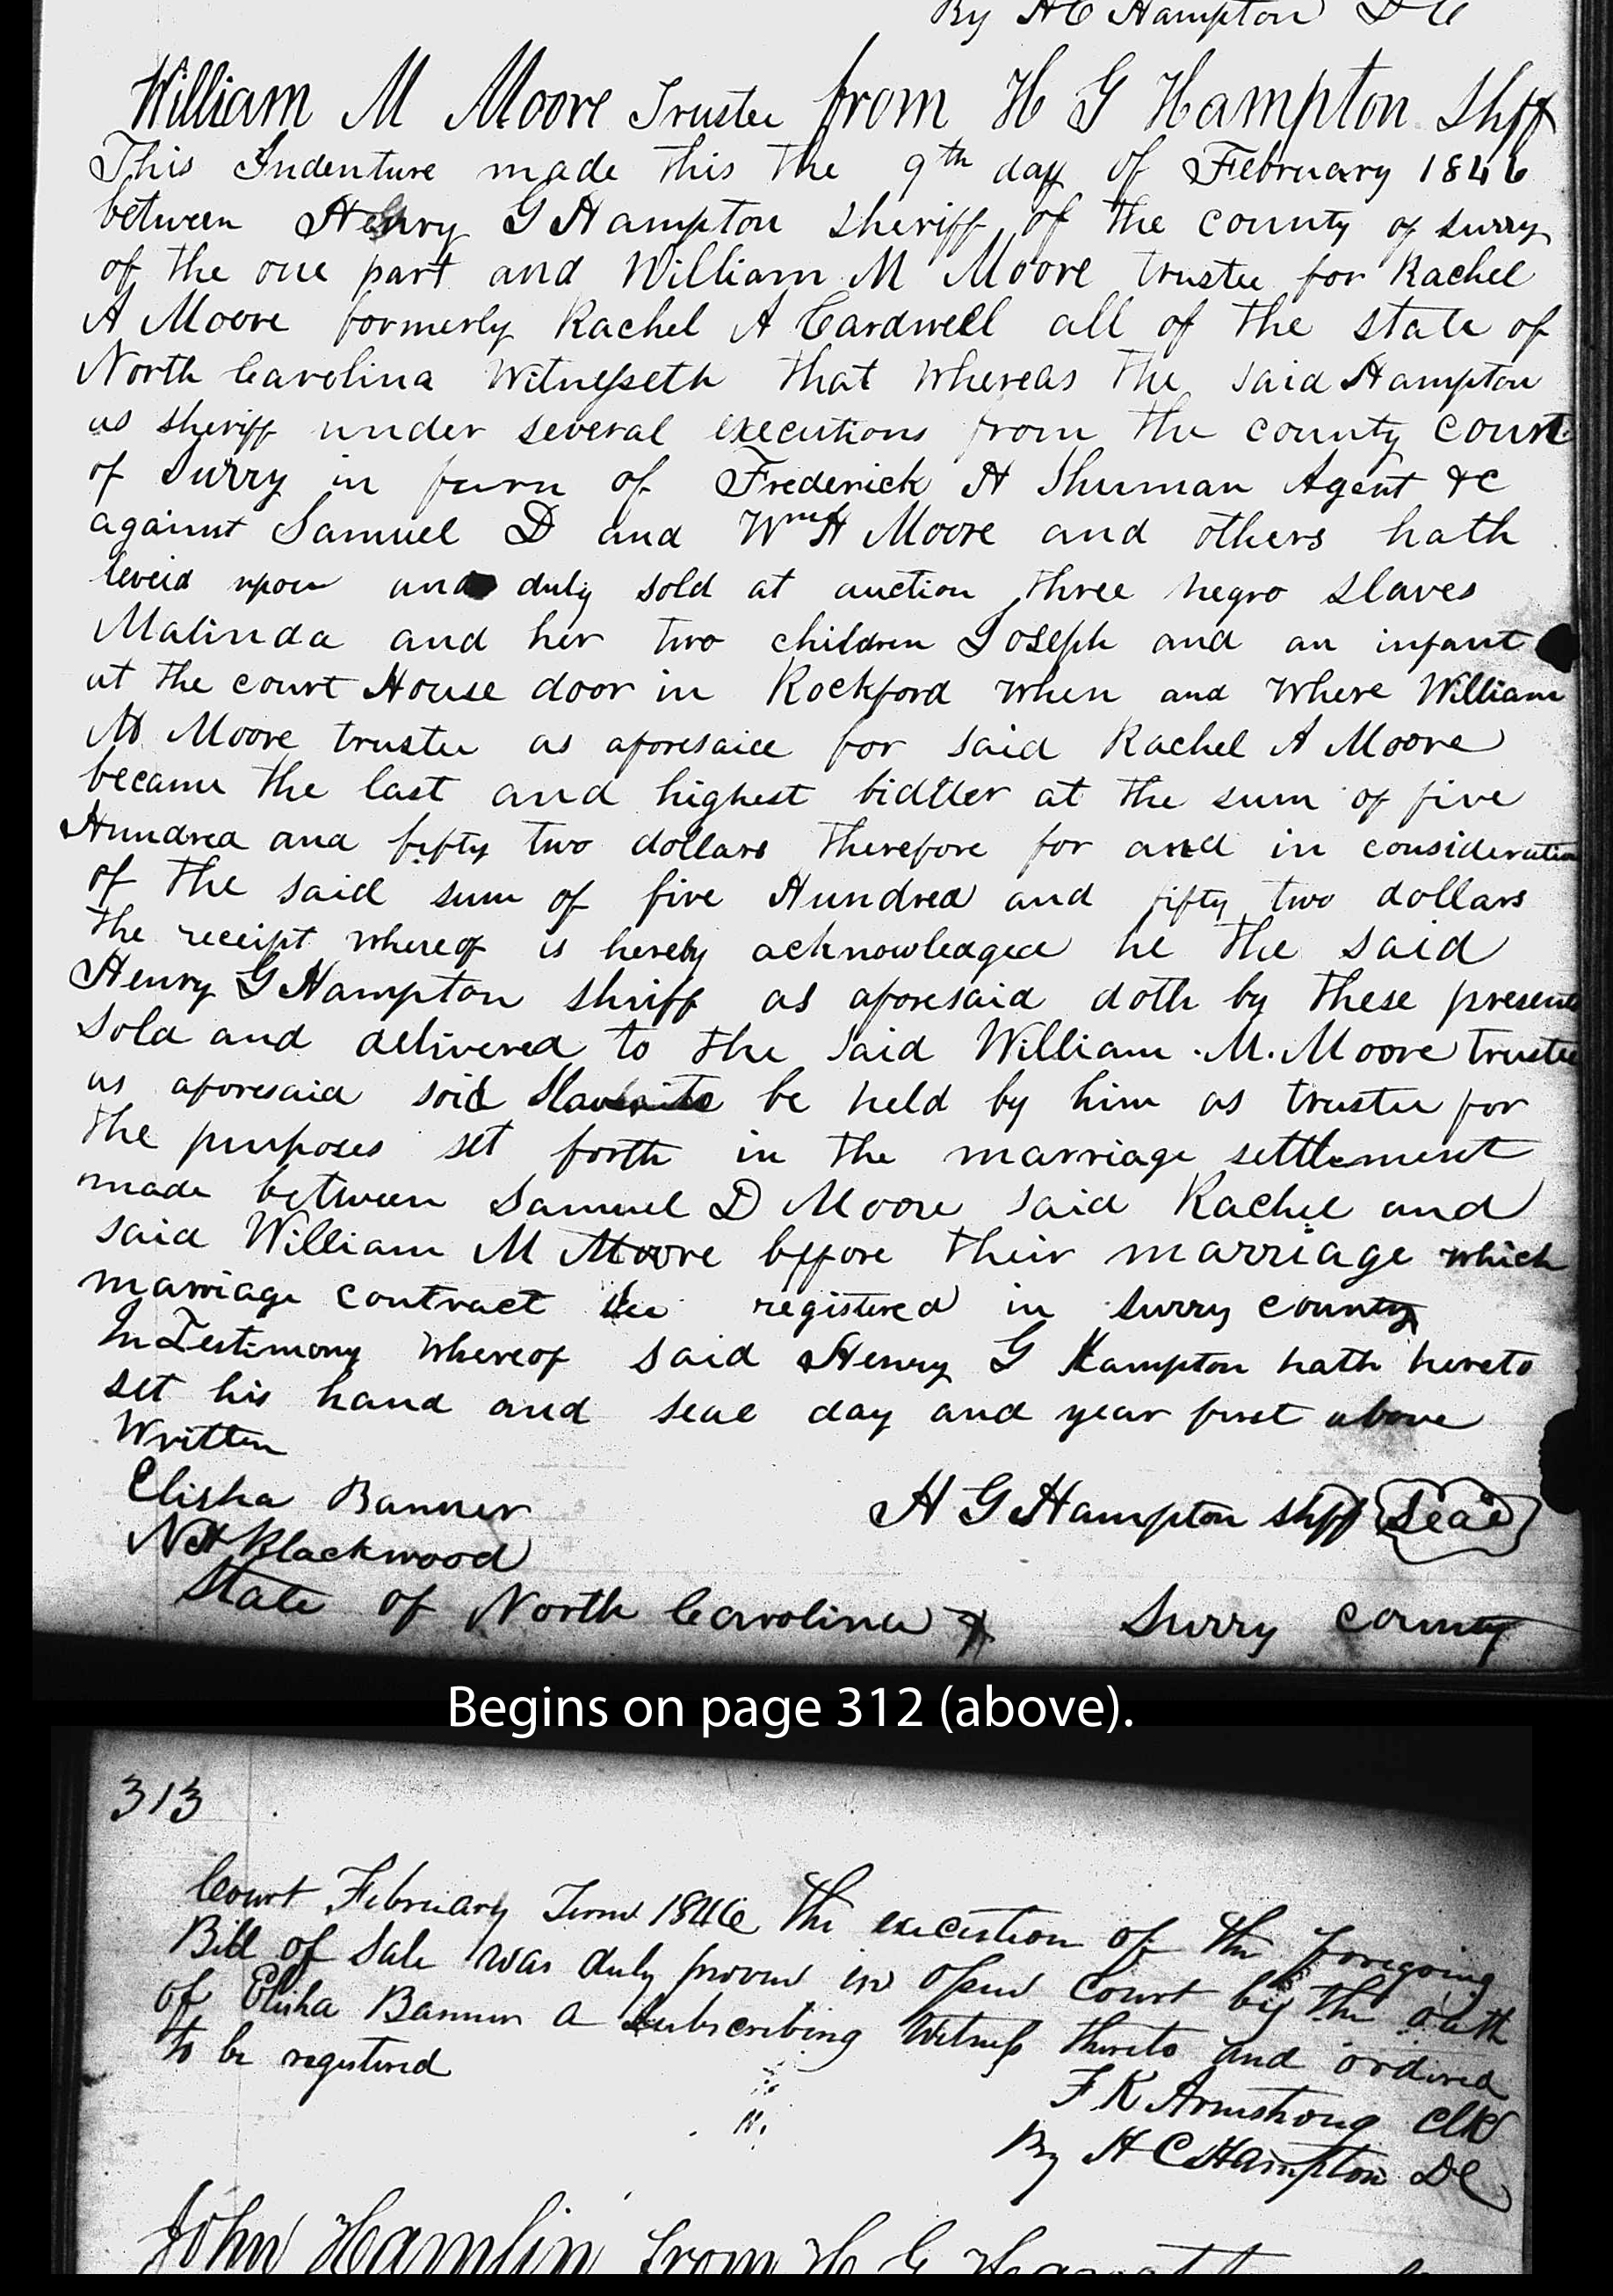 By H C Hampton D C
William M Moore Trustee from H G Hampton Shff
This Indenture made this the 9th day of February 1846
between Henry G Hampton Sheriff of the county of Surry
of the one part and William M Moore trustee for Rachel
A Moore formerly Rachel A Cardwell all of the state of
North Carolina Witnesseth that whereas the said Hampton
as sheriff under several executions from the county court
of Surry in favr of Frederick H Shuman Agent &c
against Samuel D and Wm H Moore and others hath
leveid upon and duly sold at auction three negro slaves
Malinda and her two children Joseph and an infant
at the court House door in Rockford when and where William
M Moore trustee as aforesaid for said Rachel A Moore
became the last and highest bidder at the sum of five
Hundred and fifty two dollars therefore for and in consideration
of the said sum of five Hundred and fifty two dollars
the receipt whereof is hereby acknowledged he the said
Henry G Hampton shriff as aforesaid doth by these presents
sold and delivered to the said William . M. Moore trustee
as aforesaid said be held by him as trustee for
the purposes set forth in the marriage settlement
made between Samuel D Moore said Rachel and
said William M Moore before their marriage which
marriage contract registered in Surry county
In Testimony whereof said Henry G Hampton hath hereto
set his hand and seal day and year first above
Written
Elisha Banner
H G Hampton shff Seal
N H Blackwood
State of North Carolina Surry county
Begins on page 312 (above).
313
Court February Term 1846 The execution of the foregoing
Bill of Sale was duly proven in open Court by the oath
of Elisha Banner a subscribing Witness thereto and ordired
to be registered
F K Armstrong Clk
By H C Hampton DC
John Hamlin from H G